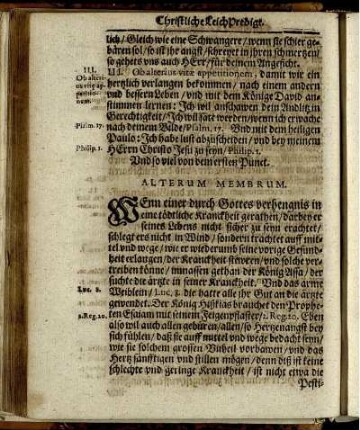 Christliche LeichPredigt.
lich/ Gleich wie eine Schwangere/ wenn sie schier ge-
bären sol/ so ist ihr angst/ schreyet in ihren schmertzen/
so gehets uns auch HErr/ für deinem Angesicht.
III.
IId. Ob alterius vitæ appetitionem, damit wir ein
hertzlich verlangen bekommen/ nach einem andern
und bessern Leben/ und mit dem Könige David an-
stimmen lernen: Ich wil anschawen dein Andlitz in
Gerechtigkeit/ Ich wil satt werden/ wenn ich erwache
Psalm. 17.
nach deinem Bilde/ Psalm. 17. Vnd mit dem heiligen
Paulo: Ich habe lust abzuscheiden/ und bey meinem
Philip. 1.
HErrn Christo Jesu zu seyn/ Philip. 1.
Und so viel von dem ersten Punct.
ALTERUM MEMBRUM.
WEnn einer durch Gottes verhengnis in
eine tödtliche Kranckheit gerathen/ darbey er
seines Lebens nicht sicher zu seyn erachtet/
schlegt ers nicht in Wind/ sondern trachtet auff mit-
tel und wege/ wie er wiederumb seine vorige Gesund-
heit erlangen/ der Kranckheit stewren/ und solche ver-
treiben könne/ inmassen gethan der König Assa/ der
suchte die ärtzte in seiner Kranckheit. Und das arme
Luc. 8.
Weiblein/ Luc. 8. die hatte alle ihr Gut an die ärtzte
gewendet. Der König Hißkias brauchet den Prophe-
2. Reg. 20.
ten Esaiam mit seinem Feigenpflaster/ 2. Reg. 20. Eben
also wil auch allen gebüren/ allen/ so Hertzenangst bey
sich fühlen/ daß sie auff mittel und wege bedacht seyn/
wie sie solchem grossen Unheil vorbawen/ und das
Hertz sänfftigen und stillen mögen/ denn diß ist keine
schlechte und geringe Kranckheit/ ist nicht etwa die
Pesti-